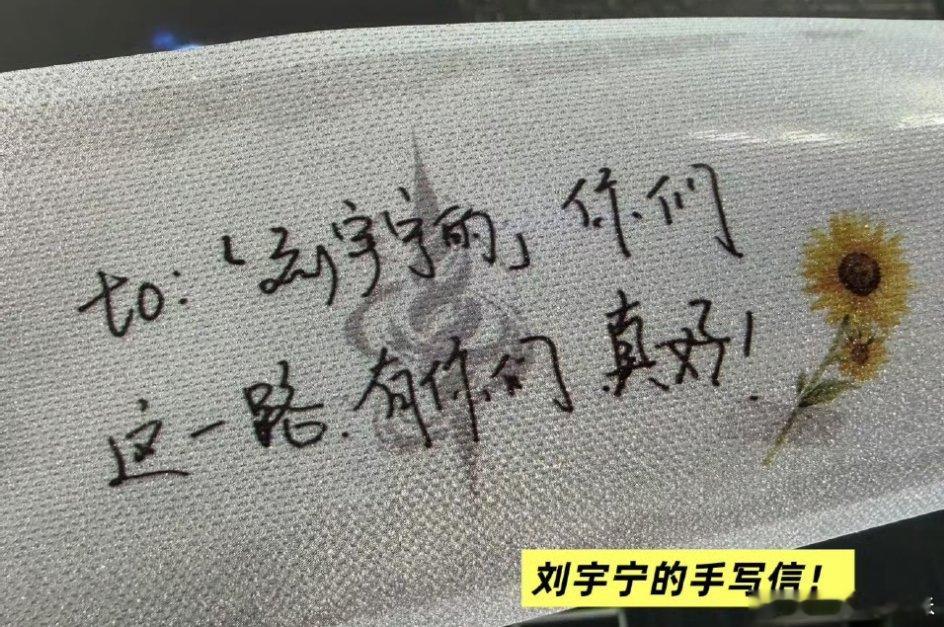 to:「刘宇宁的」你们
这一路.有你们真好!
刘宇宁的手写信!